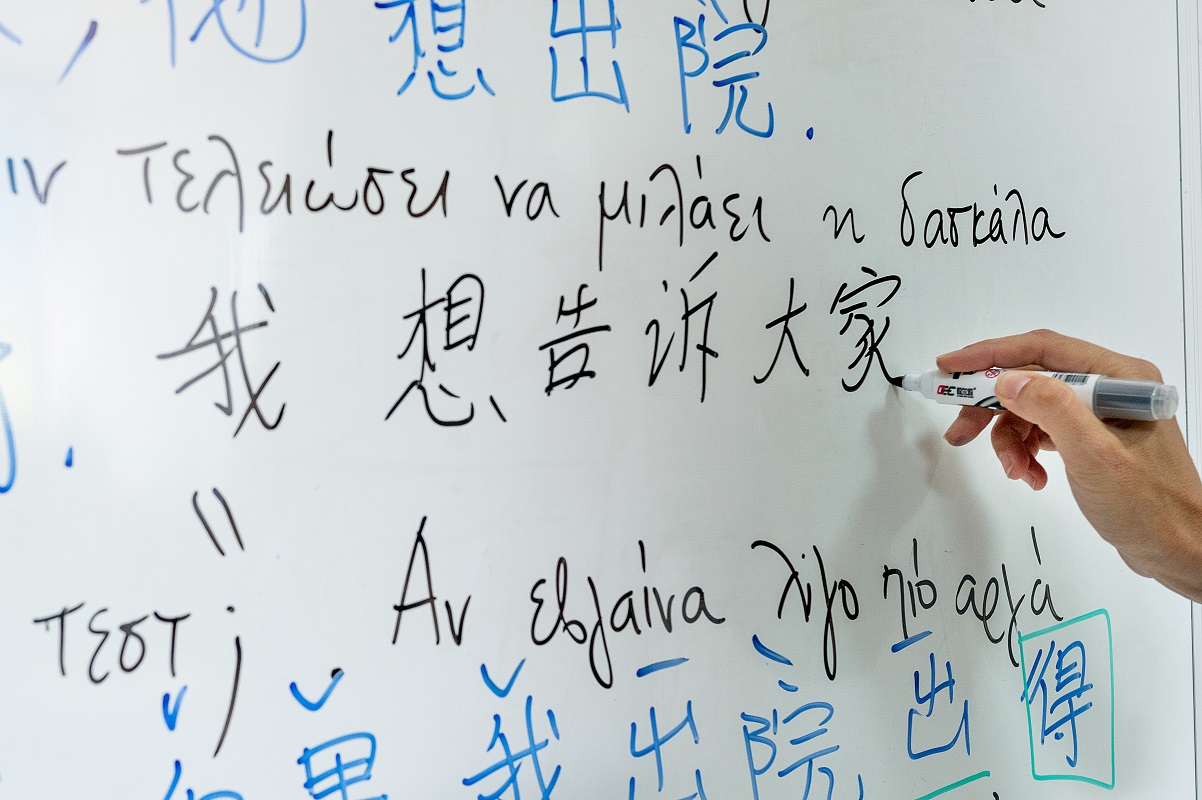 他想出院.
τελειώσει να μιλάει η δασκάλα
我想告诉大家
τεστ; . Αν εβγαίνα λίγο πιό αργά
如果我出院出得